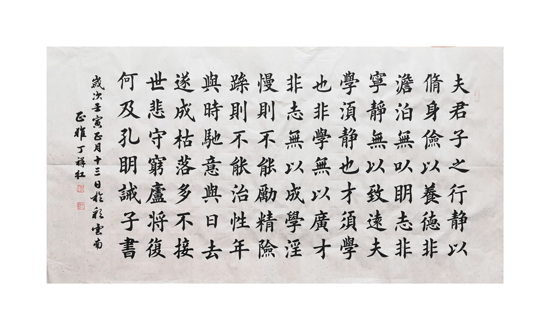 夫君子之行静以
脩身儉以養德非
澹泊無以明志非
寧靜無以致遠夫
學須静也才須學
也非學無以廣才
非志無以成學淫
慢則不能勵精險
躁則不能治性年
與時馳意與日去
遂成枯落多不接
世悲守窮廬將復
何及孔明誡子書
歲次壬寅正月十三日於彩雲南
丁祥